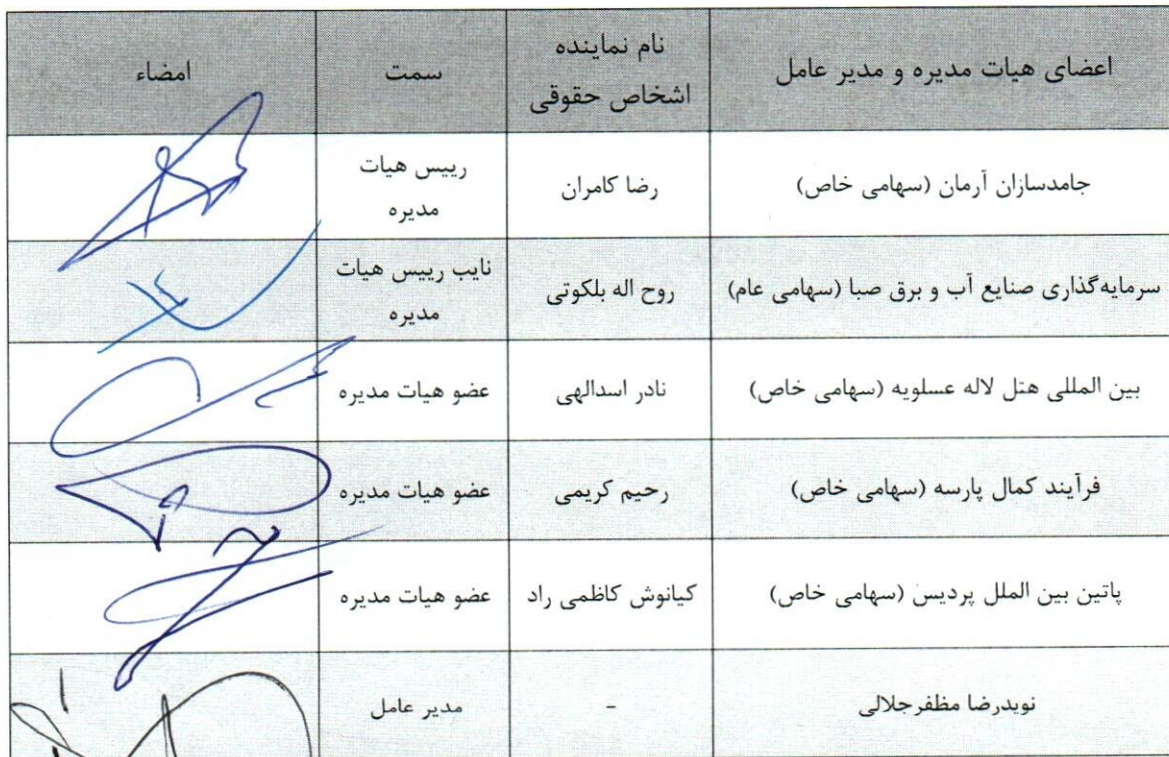 اعضای هیات مدیره و مدیر عامل	نام نماینده اشخاص حقوقی	سمت	امضاء
جامدسازان آرمان (سهامی خاص)	رضا کامران	رییس هیات مدیره
سرمایه‌گذاری صنایع آب و برق صبا (سهامی عام)	روح اله بلکوتی	نایب رییس هیات مدیره
بین المللی هتل لاله عسلویه (سهامی خاص)	نادر اسدالهی	عضو هیات مدیره
فرآیند کمال پارسه (سهامی خاص)	رحیم کریمی	عضو هیات مدیره
پاتین بین الملل پردیس (سهامی خاص)	کیانوش کاظمی راد	عضو هیات مدیره
نویدرضا مظفرجلالی	-	مدیر عامل